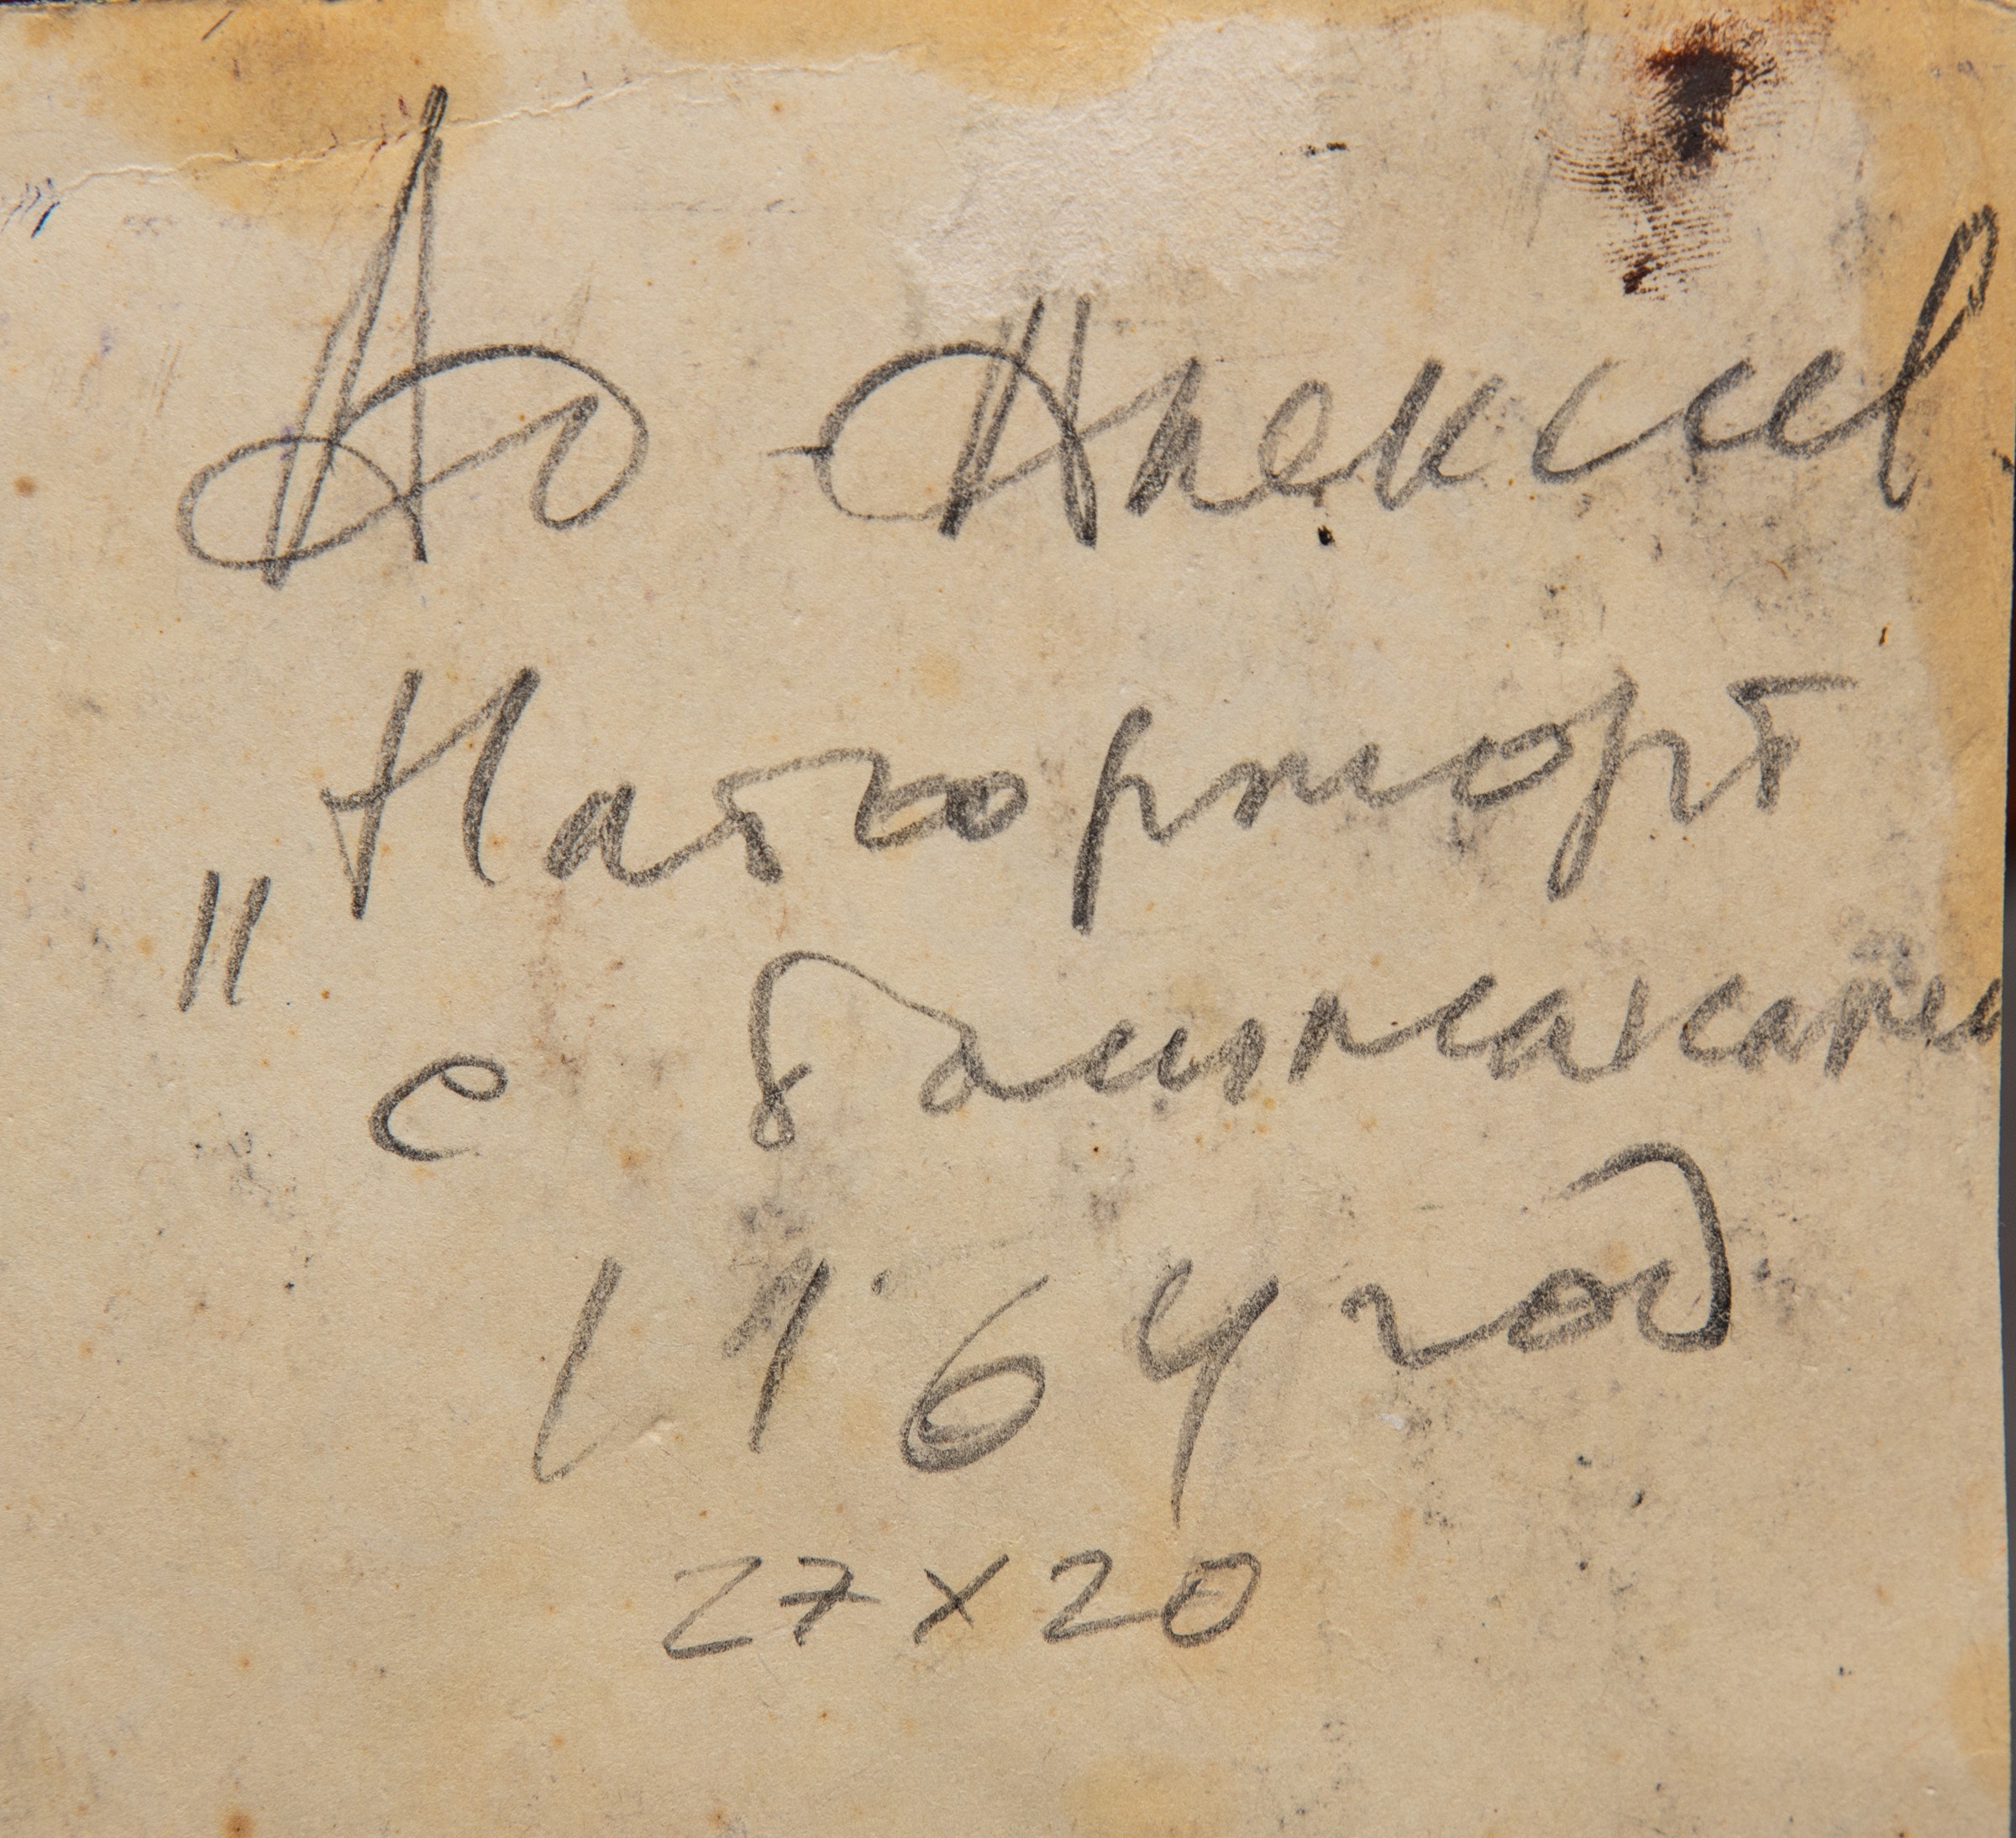 Алексеев
„Натюрморт
с баклажана
1964 год
27 x 20